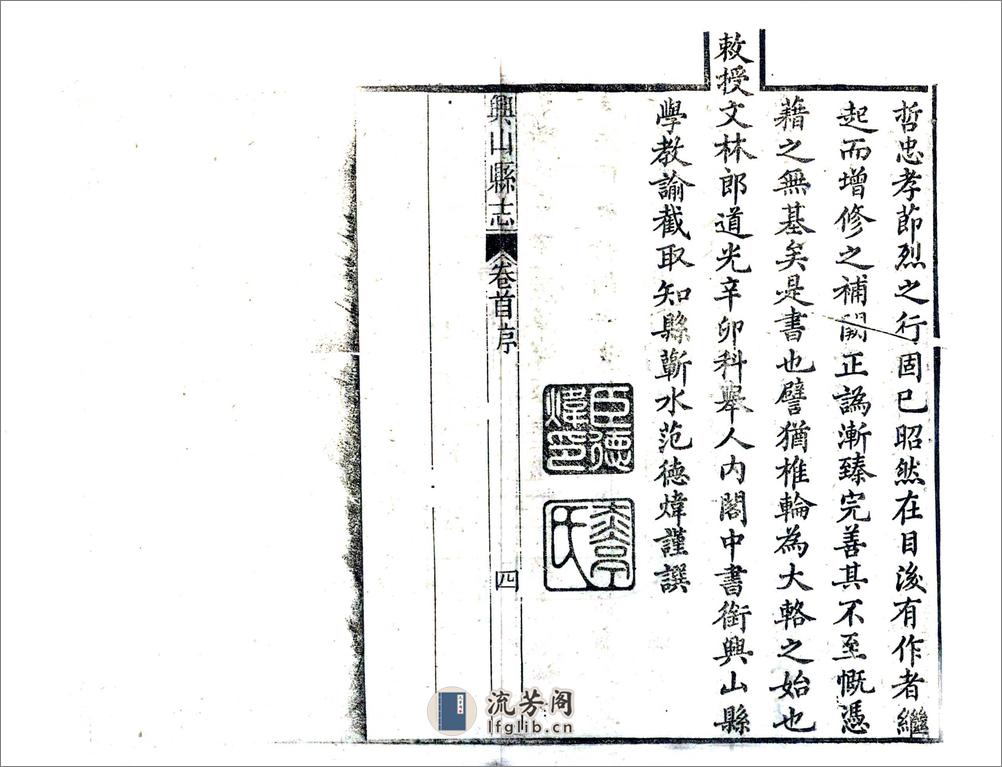 哲忠孝節烈之行固已昭然在目後有作者繼
起而增修之補闕正譌漸臻完善其不至慨憑
藉之無基矣是書也譬猶椎輪為大輅之始也
敕授文林郎道光辛卯科舉人內閣中書銜興山縣
學教諭截取知縣蘄水范德煒謹譔
臣德
煒印
氏
興山縣志
卷首序
四
流芳阁
lfglib.cn